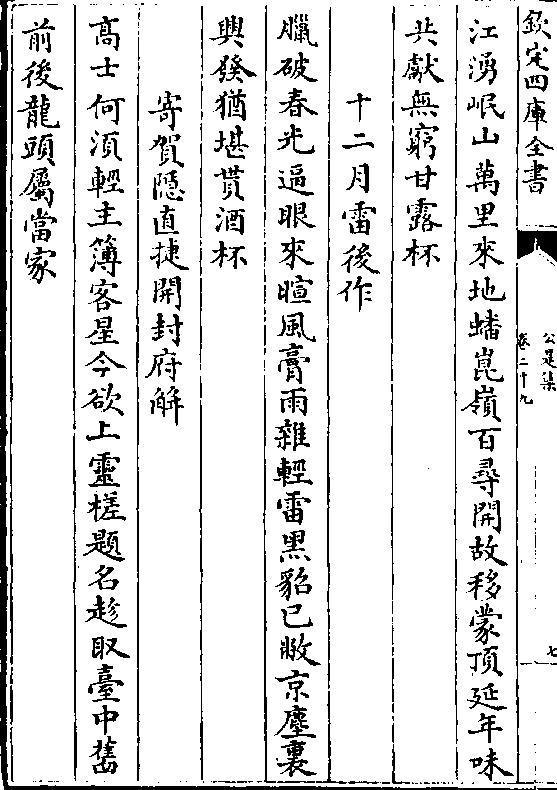 欽定四庫全書
公是集
卷二十九
七
江湧岷山萬里來地蟠崑嶺百尋開故移蒙頂延年味
共獻無窮甘露杯
十二月雷後作
臘破春光逼眼來暄風膏雨雜輕雷黒貂已敝京塵裏
興發猶堪貰酒杯
寄賀隠直捷開封府解
髙士何湏輕主簿客星今欲上靈槎題名趂取臺中舊
前後龍頭屬當家